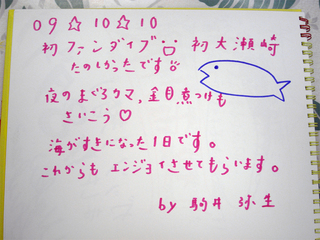 09☆10☆10
初ファンダイブ 初大瀬崎
たのしかったです
夜のまぐろカマ,金目煮つけも
さいこう♡
海がすきになった1日です。
これからも エンジョイさせてもらいます。
by 駒井 弥生